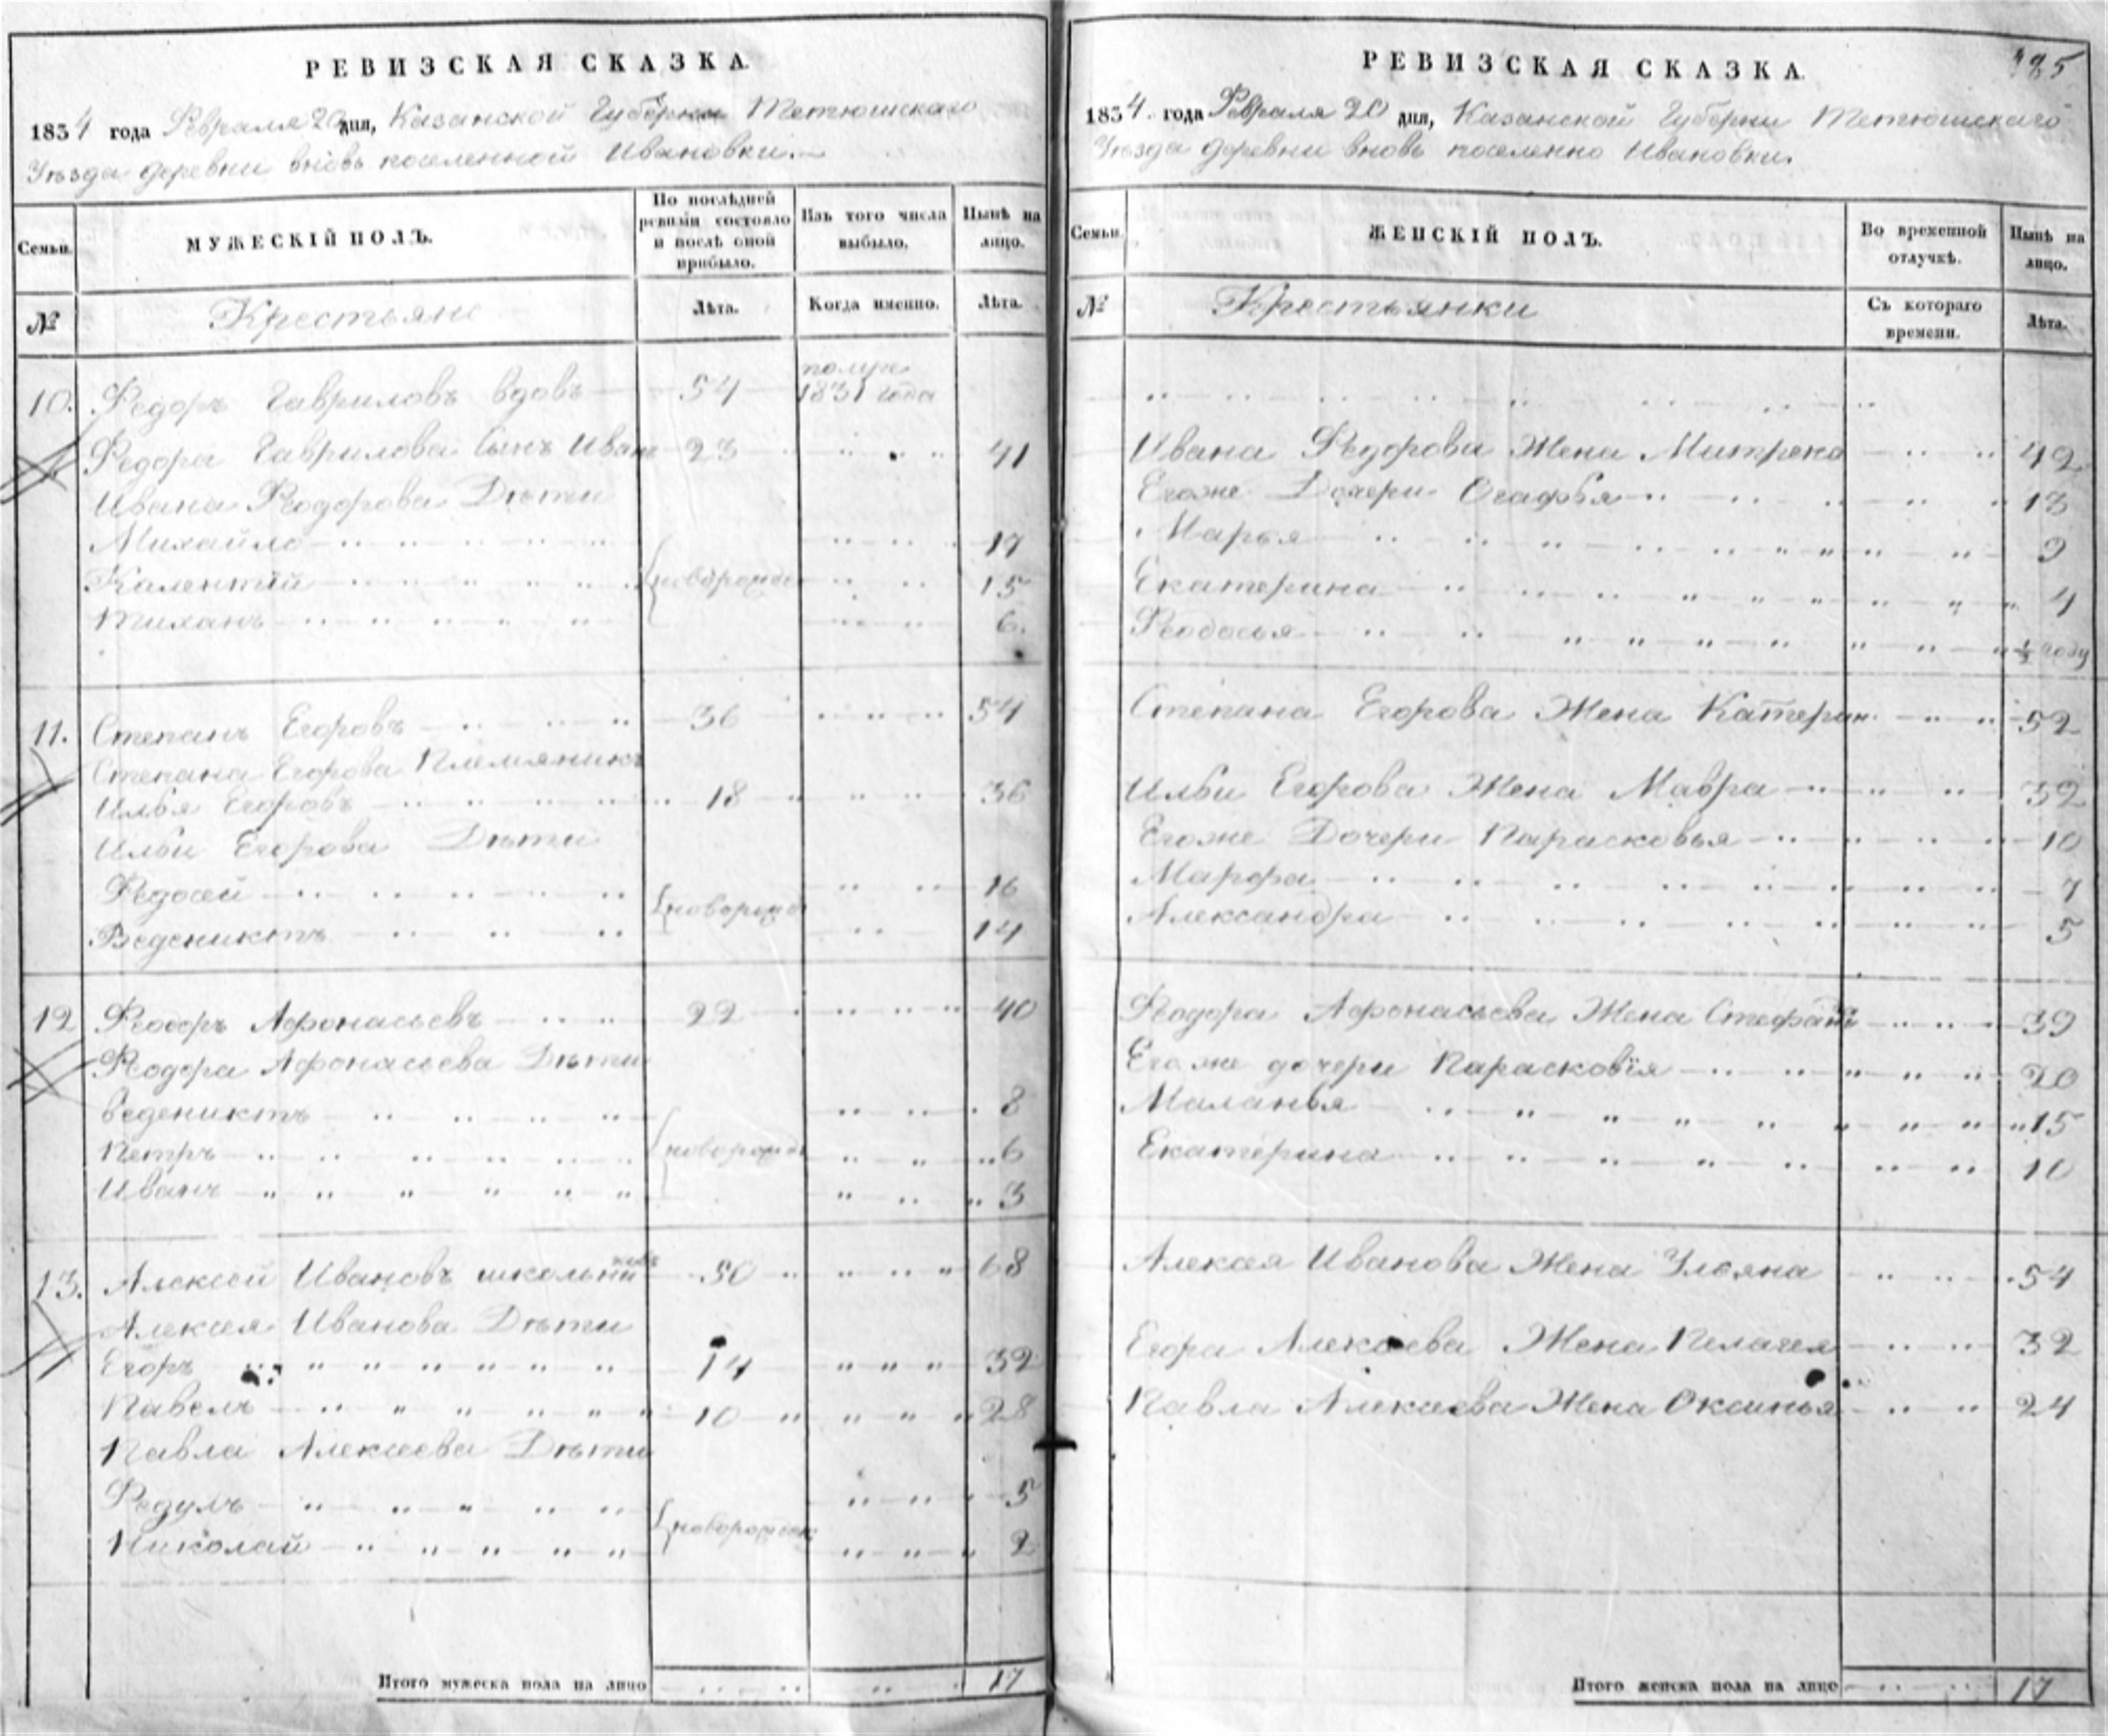 РЕВИЗСКАЯ СКАЗКА.
1834 года Февраля 20 дня, Казанской Губернии Тетюшскаго
Уѣзда деревни вновь поселенной Ивановки.
Семьи.
МУЖЕСКІЙ ПОЛЪ.
По послѣдней ревизіи состояло и послѣ оной прибыло.
Изъ того числа выбыло.
Нынѣ на лицо.
№
Крестьяне
Лѣта.
Когда именно.
Лѣта.
10. Федоръ Гавриловъ вдовъ 54 1831 года
Федора Гаврилова Сынъ Иван 23 41
Ивана Ѳеодорова Дѣти
Михайло 17
Калентій 15
Тиханъ 6.
11. Степанъ Егоровъ 36 54
Степана Егорова Племяникъ
Илья Егоровъ 18 36
Ильи Егорова Дѣти
Федосей 16
Веденихтъ 14
12 Ѳеодоръ Афонасьевъ 22 40
Ѳеодора Афонасьева Дѣти
Веденихтъ 8
Петръ 6
Иванъ 3
13. Алексей Ивановъ 50 68
Алексея Иванова Дѣти
Егоръ 14 32
Павелъ 10 28
Павла Алексеева Дѣти
Федулъ 5
Николай 2
Итого мужеска пола на лицо 17
РЕВИЗСКАЯ СКАЗКА.
185
1834. года Февраля 20 дня, Казанской Губерни Тетюшскаго
Уѣзда деревни вновь поселенно Ивановки.
Семьи.
ЖЕНСКІЙ ПОЛЪ.
Во временной отлучкѣ.
Нынѣ на лицо.
№
Крестьянки
Съ котораго времени.
Лѣта.
Ивана Федорова Жена Митрена 42
Егоже Дочери Огафья 13
Марья 9
Екатерина 4
Ѳеодосья ½ году
Степана Егорова Жена Катерин 52
Ильи Егорова Жена Мавра 32
Егоже Дочери Парасковья 10
Марфа 7
Александра 5
Ѳеодора Афонасьева Жена 39
Егоже дочери Парасковія 20
Маланья 15
Екатерина 10
Алексея Иванова Жена Ульяна 54
Егора Алексеева Жена Пелагея 32
Павла Алексеева Жена Оксинья 24
Итого женска пола на лицо 17